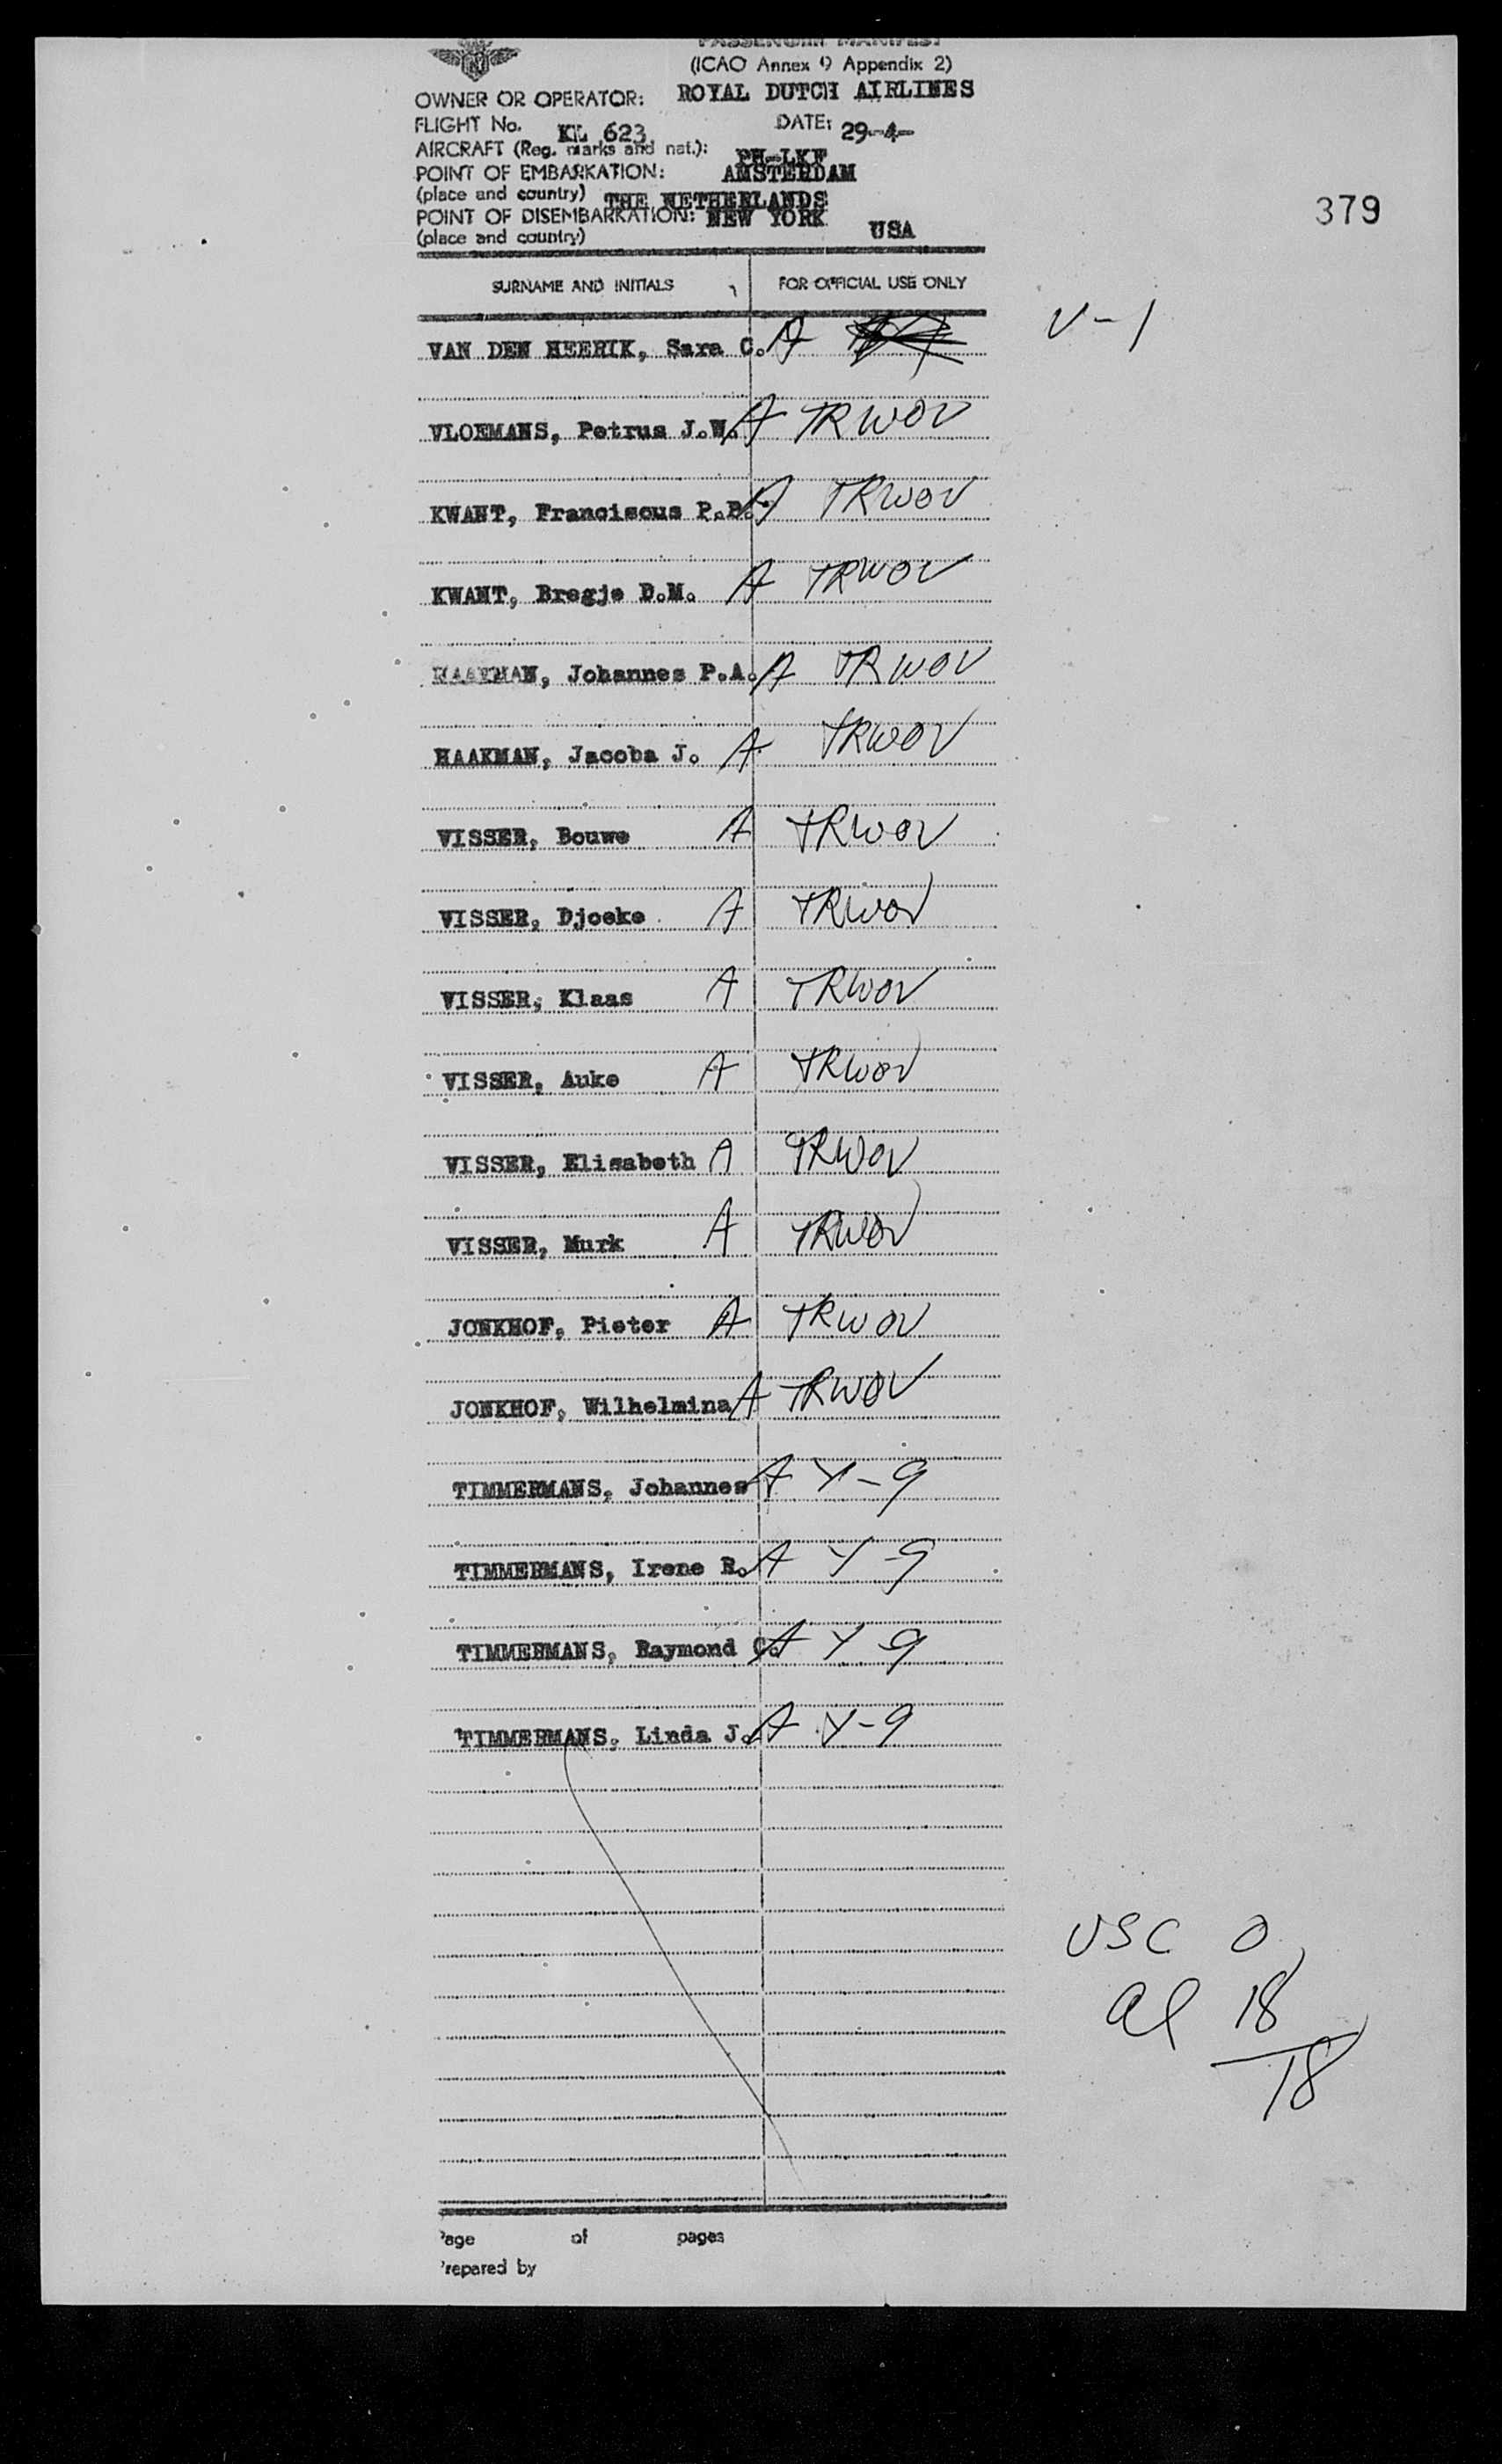 PASSENGER MANIFEST
(ICAO Annex 9 Appendix 2)
OWNER OR OPERATOR: ROYAL DUTCH AIRLINES
FLIGHT No. KL 623 DATE: 29-4-
AIRCRAFT (Reg. marks and nat.): PH-LKF
POINT OF EMBARKATION: AMSTERDAM
(place and country) THE NETHERLANDS
POINT OF DISEMBARKATION: NEW YORK
(place and country) USA
379
SURNAME AND INITIALS FOR OFFICIAL USE ONLY
VAN DEN HEERIK, Sara C. A V-1
VLOEMANS, Petrus J.W. A TRWOV
KWANT, Franciscus P.B. A TRWOV
KWANT, Bregje D.M. A TRWOV
HAAKMAN, Johannes P.A. A TRWOV
HAAKMAN, Jacoba J. A TRWOV
VISSER, Bouwe A TRWOV
VISSER, Djoeke A TRWOV
VISSER, Klaas A TRWOV
VISSER, Auke A TRWOV
VISSER, Elisabeth A TRWOV
VISSER, Murk A TRWOV
JONKHOF, Pieter A TRWOV
JONKHOF, Wilhelmina A TRWOV
TIMMERMANS, Johannes A Y-9
TIMMERMANS, Irene R. A Y-9
TIMMERMANS, Raymond C. A Y-9
TIMMERMANS, Linda J. A Y-9
USC 0
al 18
18
Page of pages
Prepared by